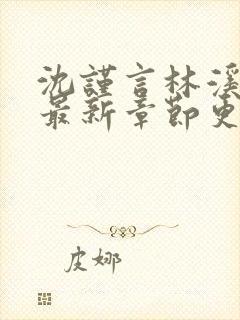 沈謹言林溪
最新章節更
皮娜